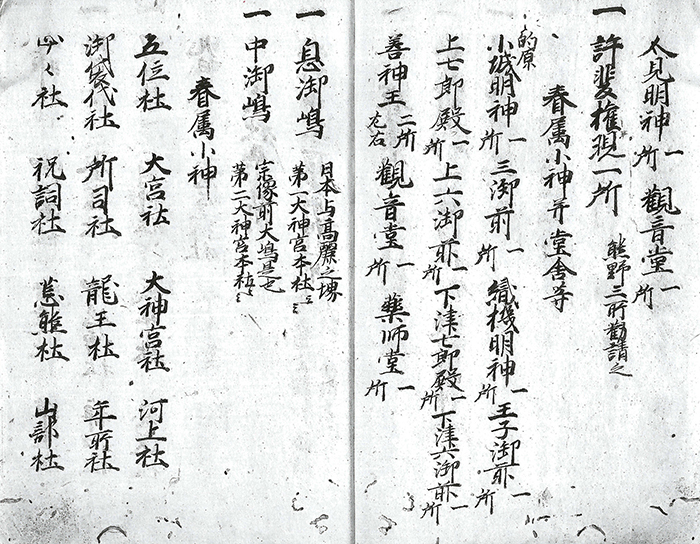 太見明神一所 観音堂一所
一 許斐権現一所 熊野三所勧請之
眷属小神并堂舎等
的原
小城明神一所 三御前一所 織機明神一所 王子御前一所
上七郎殿一所 上六御前一所 下津七郎殿一所 下津六御前一所
善神王二所 左右 観音堂一所 薬師堂一所
一 息御嶋 日本与高麗之堺
第一大神宮本社云々
一 中御嶋 宗像前大嶋是也
第二大神宮本社云々
眷属小神
五位社 大宮社 大神宮社 河上社
御袋代社 所司社 龍王社 年所社
山々社 祝詞社 社 山部社